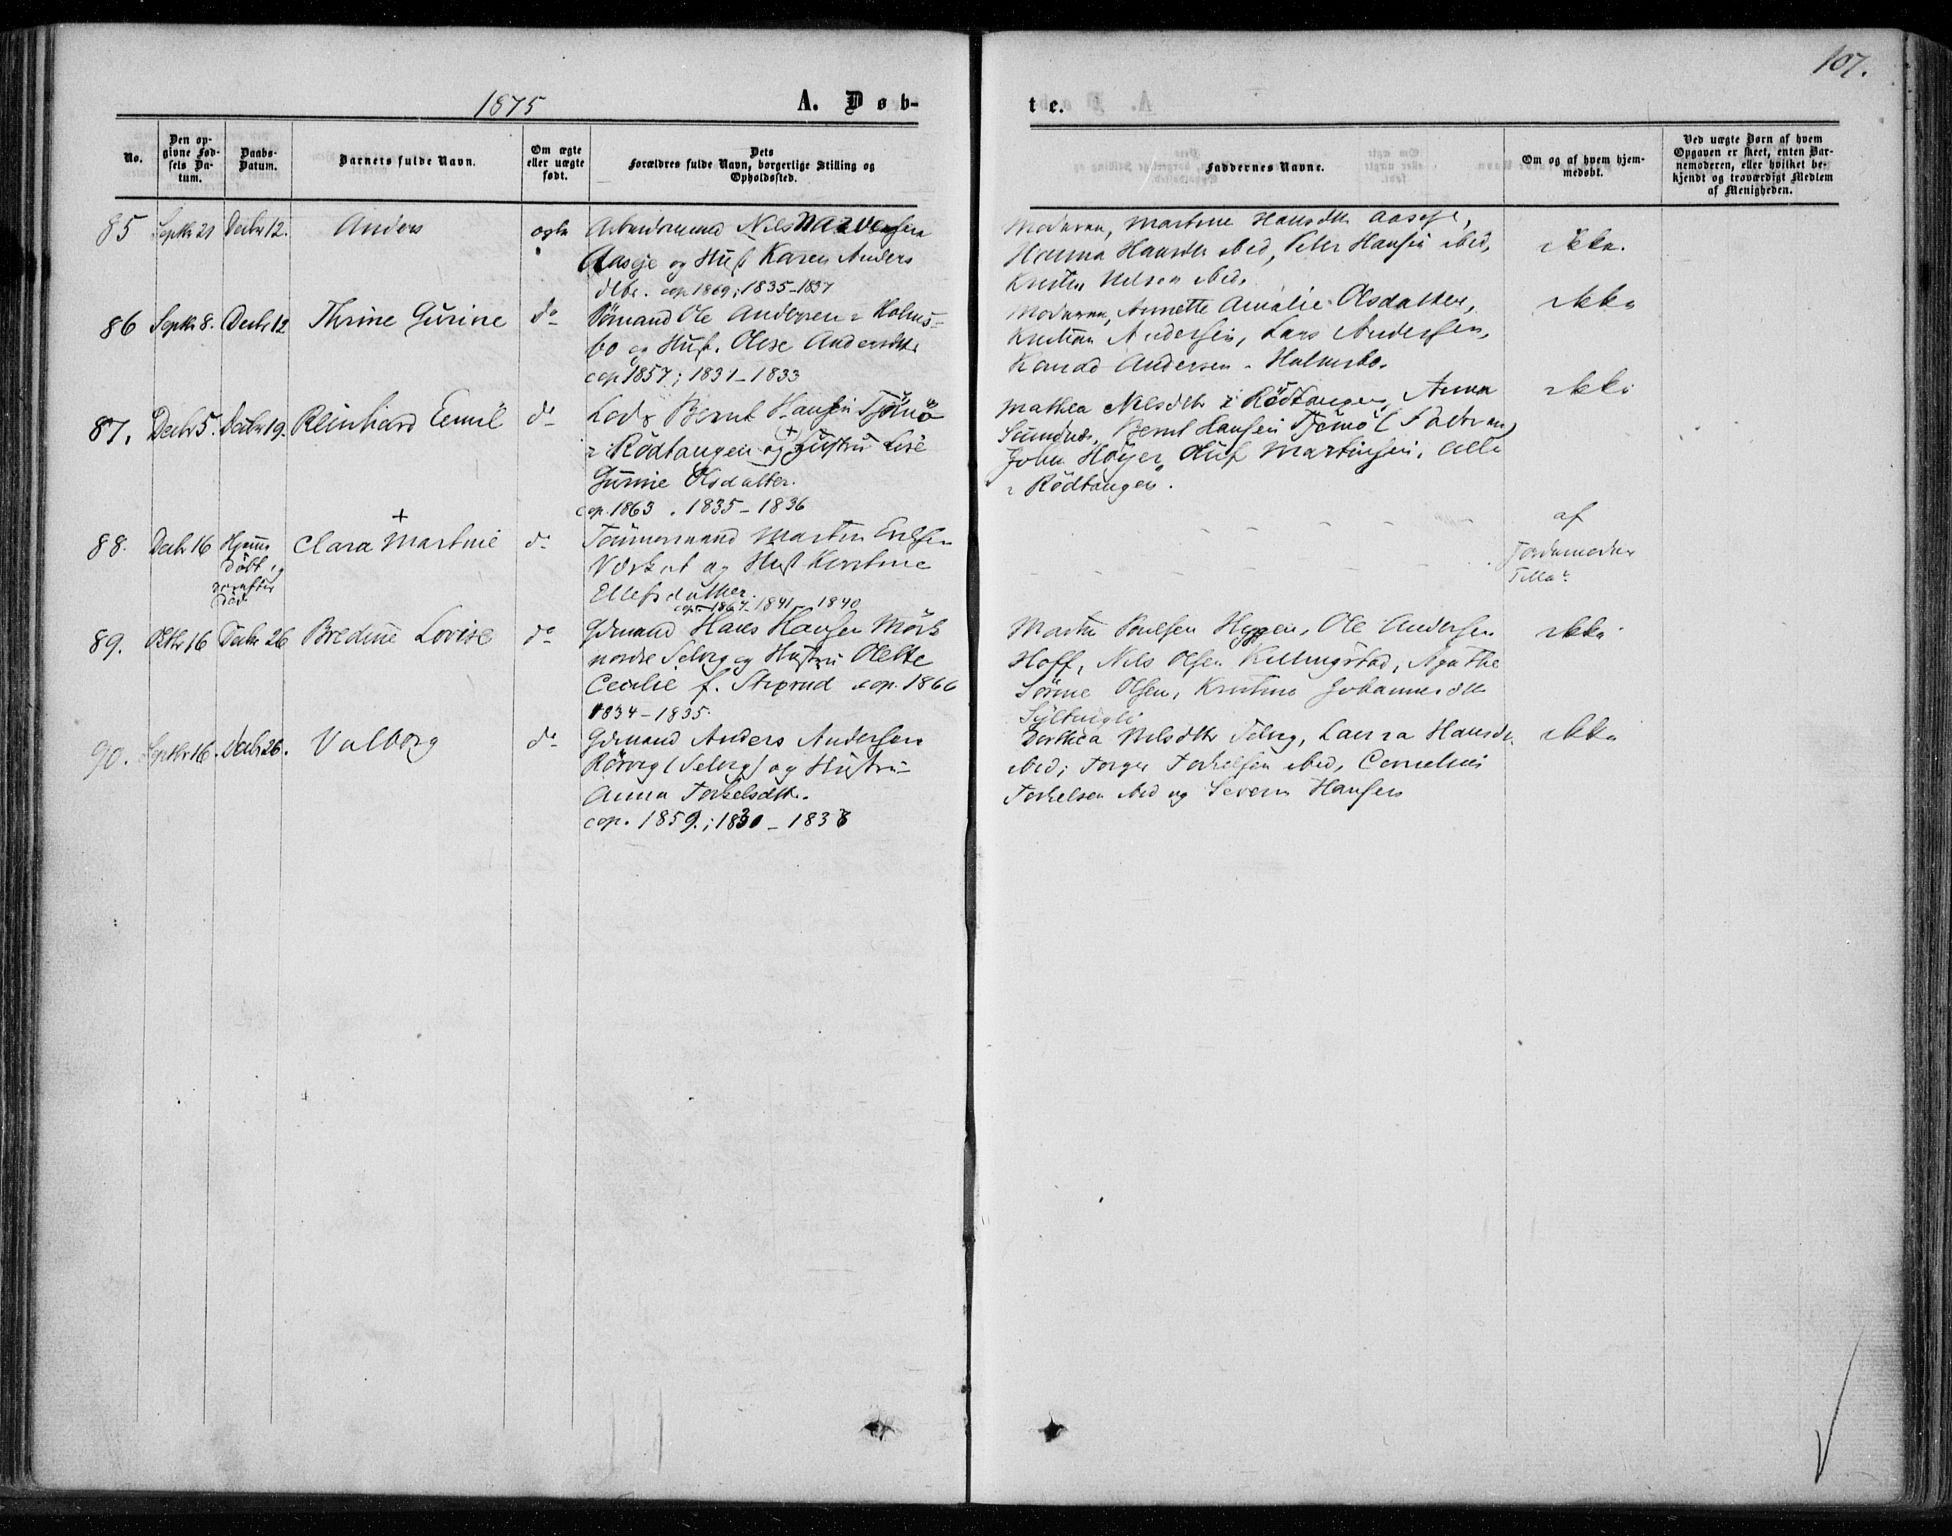 107.
1875 A. Døb-
te.
No.
Den op-
givne Fød-
sels Da-
tum.
Daabs-
Datum.
Barnets fulde Navn.
Om ægte
eller uægte
født.
Dets
Forældres fulde Navn, borgerlige Stilling og
Opholdssted.
Faddernes Navne.
Om og af hvem hjem-
medøbt.
Ved uægte Børn af hvem
Opgaven er skeet, enten Bar-
nemoderen, eller hvilket be-
kjendt og troværdigt Medlem
af Menigheden.
85 Septbr 21 Decbr 12. Anders ægte Arbeidsmand Nils
Aasgje og Hust Karen Anders
dtr. cop 1869; 1835-1837
Moderen, Martine Hansdtr Aasgje,
Hansdtr ibid, Peter Hansen ibid,
Kristen Nelsen ibid.
ikke.
86 Septbr 8. Decbr 12 Thrine Gurine do Ole Andersen i Holms-
bo og Hust. Olise Andersdtr
cop 1857; 1831-1833
Moderen, Annette Amalie Olsdatter,
Kristian Andersen, Lars Andersen,
Konrad Andersen - Holmsbo.
ikke
87. Decbr 5. Decbr 19. Reinhard Eemil do Lods Bernt Hansen Tjömö
i Rödtangen og Hustru Lise
Gurine Olsdatter.
cop. 1863. 1835-1836
Mathea Nilsdtr i Rödtangen, Anna
Sundnes, Bernt Hansen Tjömö (Faderen)
John Höyer, Oluf Martinsen, alle
i Rödtangen.
ikke
88. Decbr 16 Hjemme
döbt,
derefter
död
Clara Martine do Tömmermand Martin
og Hust Kirstine
Ellefsdatter.
cop. 1867. 1841-1840
af
Jordemoder
89. Octbr 16 Decbr 26 Bredine Lovise do Grmand Hans Hansen Mörk
nordre Selvig og Hustru Olette
Cecilie f. Stixrud cop. 1866
1834-1835.
Martin Poulsen Heggen, Ole Andersen
Hoff, Nils Olsen Killingstad, Agathe
Sörine Olsen, Kristine Johannesdtr
ikke
90. Septbr 16. Decbr 26. Valborg do Grmand Anders Andersen
Rörvig (Selvig) og Hustru
Anna Torkelsdtr.
cop. 1859.; 1830-1838
Dorthea Nilsdtr Selvig, Laura Hansdtr
ibid; Torger Torkelsen ibid, Cornelius
Torkelsen ibid og Severin Hansen
ikke